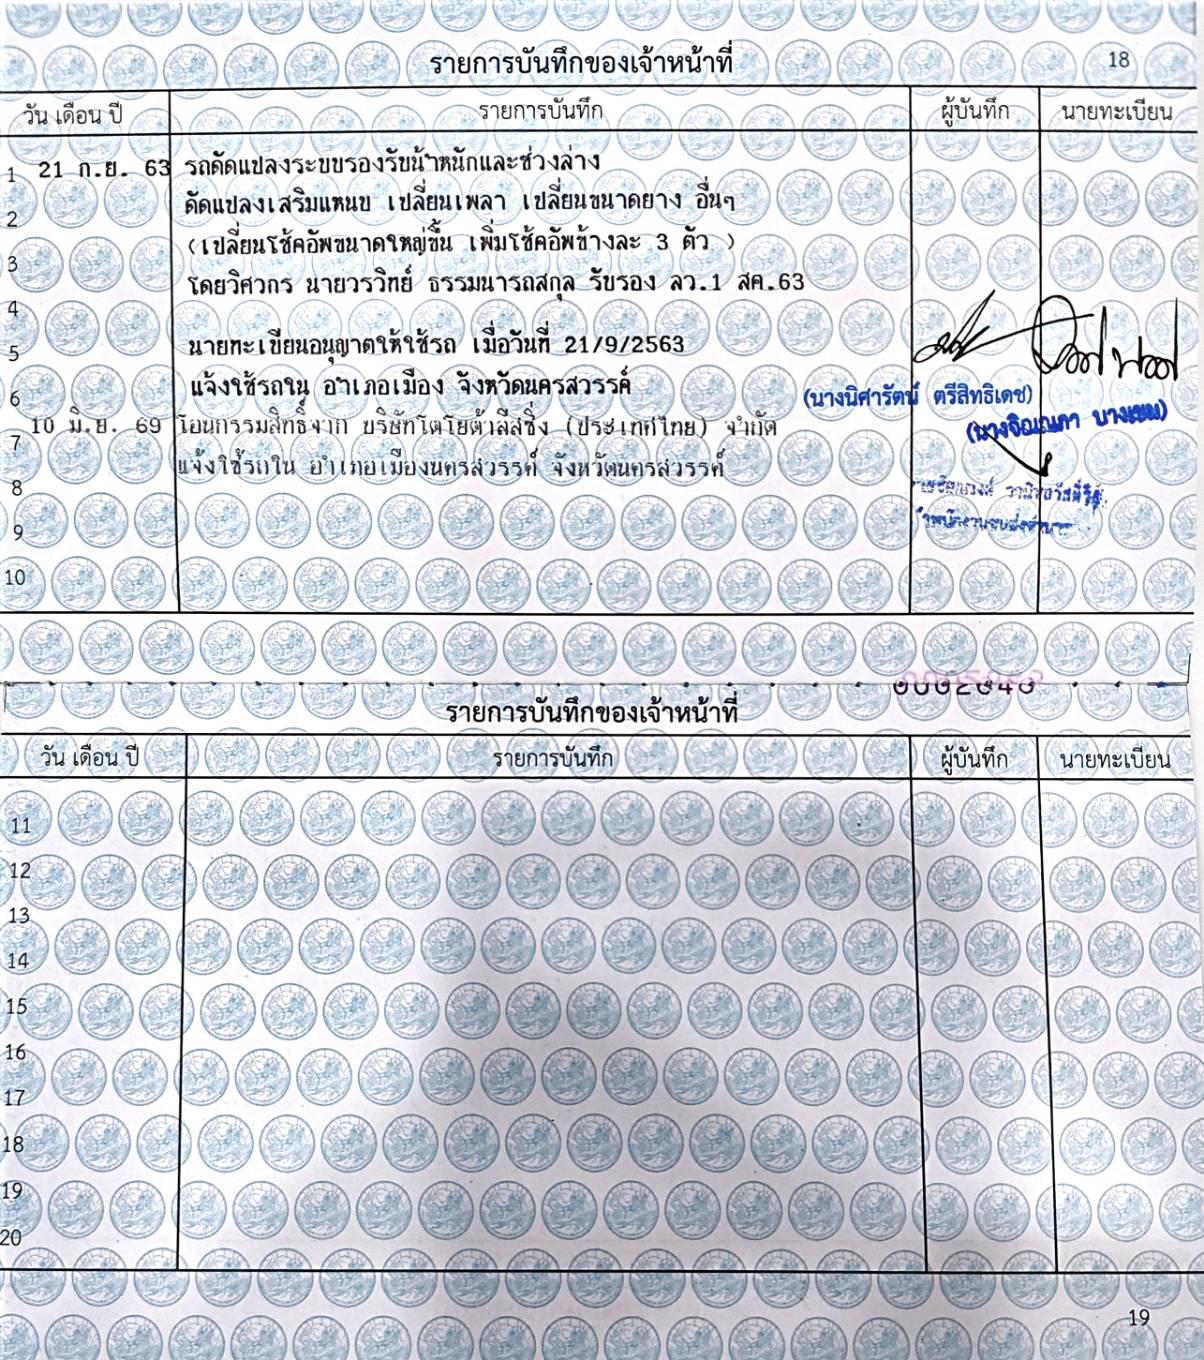 รายการบันทึกของเจ้าหน้าที่ 18
วัน เดือน ปี รายการบันทึก ผู้บันทึก นายทะเบียน
1 21 ก.ย. 63 รถดัดแปลงระบบรองรับน้ำหนักและช่วงล่าง
2 ดัดแปลงเสริมแหนบ เปลี่ยนเพลา เปลี่ยนขนาดยาง อื่นๆ
3 (เปลี่ยนโช้คอัพขนาดใหญ่ขึ้น เพิ่มโช้คอัพข้างละ 3 ตัว )
4 โดยวิศวกร นายวรวิทย์ ธรรมนารถสกุล รับรอง ลว.1 สค.63
5 นายทะเบียนอนุญาตให้ใช้รถ เมื่อวันที่ 21/9/2563
6 แจ้งใช้รถใน อำเภอเมือง จังหวัดนครสวรรค์
(นางนิศารัตน์ ตรีสิทธิเดช)
7 10 มิ.ย. 69 โอนกรรมสิทธิ์จาก บริษัทโตโยต้าลีสซิ่ง (ประเทศไทย) จำกัด
8 แจ้งใช้รถใน อำเภอเมืองนครสวรรค์ จังหวัดนครสวรรค์
9
10
รายการบันทึกของเจ้าหน้าที่
วัน เดือน ปี รายการบันทึก ผู้บันทึก นายทะเบียน
11
12
13
14
15
16
17
18
19
20
19